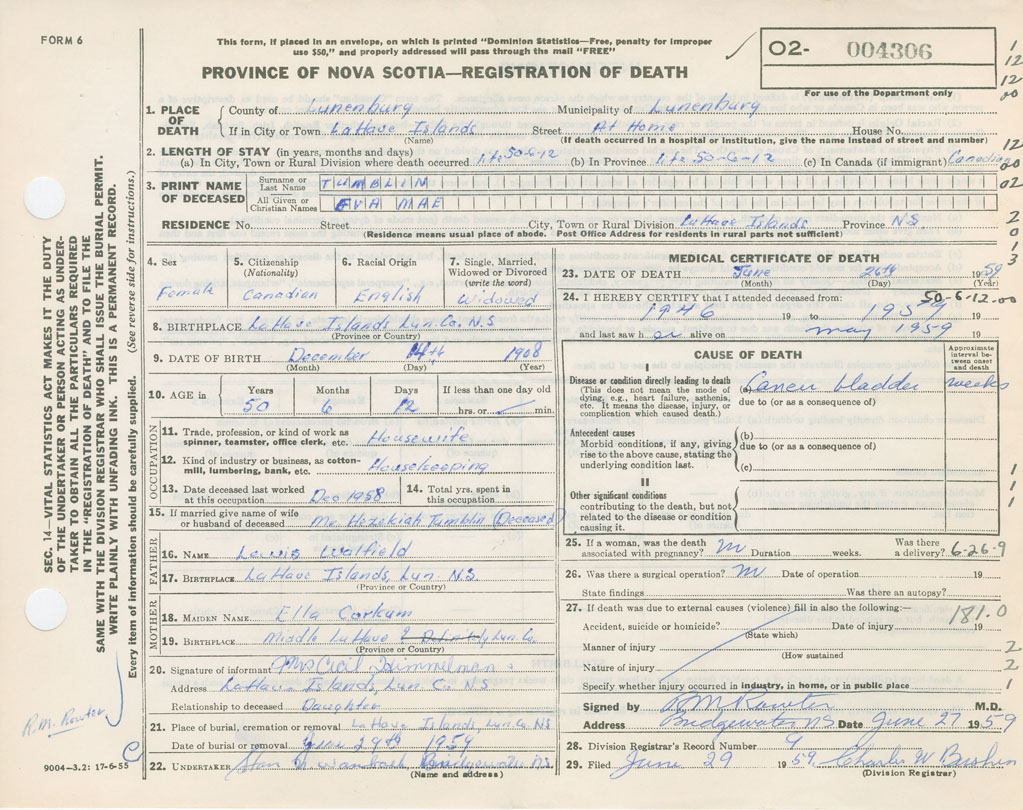 FORM 6
This form, if placed in an envelope, on which is printed "Dominion Statistics—Free, penalty for improper
use $50," and properly addressed will pass through the mail "FREE"
PROVINCE OF NOVA SCOTIA—REGISTRATION OF DEATH
O2- 004306
For use of the Department only
1. PLACE OF DEATH
County of Lunenburg Municipality of Lunenburg
If in City or Town LaHave Islands Street At Home House No.
(Name) (If death occurred in a hospital or institution, give the name instead of street and number)
2. LENGTH OF STAY (in years, months and days)
(a) In City, Town or Rural Division where death occurred life 50-6-12 (b) In Province life 50-6-12 (c) In Canada (if immigrant) Canadian
3. PRINT NAME OF DECEASED
Surname or Last Name TUMBLIN
All Given or Christian Names EVA MAE
RESIDENCE No. Street City, Town or Rural Division LaHave Islands Province N.S.
(Residence means usual place of abode. Post Office Address for residents in rural parts not sufficient)
4. Sex Female
5. Citizenship (Nationality) Canadian
6. Racial Origin English
7. Single, Married, Widowed or Divorced (write the word) Widowed
8. BIRTHPLACE LaHave Islands Lun. Co. N.S
(Province or Country)
9. DATE OF BIRTH December 14th 1908
(Month) (Day) (Year)
10. AGE in Years 50 Months 6 Days 12 If less than one day old hrs. or min.
OCCUPATION
11. Trade, profession, or kind of work as spinner, teamster, office clerk, etc. Housewife
12. Kind of industry or business, as cotton-mill, lumbering, bank, etc. Housekeeping
13. Date deceased last worked at this occupation Dec 1958
14. Total yrs. spent in this occupation
15. If married give name of wife or husband of deceased Mr. Hezekiah Tumblin (Deceased)
FATHER
16. NAME Lewis Walfield
17. BIRTHPLACE LaHave Islands, Lun. N.S.
(Province or Country)
MOTHER
18. MAIDEN NAME Ella Corkum
19. BIRTHPLACE Middle LaHave Lun. Co.
(Province or Country)
20. Signature of informant Mrs Cecil Himmelman
Address LaHave Islands, Lun. Co. N.S
Relationship to deceased Daughter
21. Place of burial, cremation or removal LaHave Islands, Lun. Co. NS
Date of burial or removal June 29th 1959
22. UNDERTAKER Bridgewater N.S.
(Name and address)
MEDICAL CERTIFICATE OF DEATH
23. DATE OF DEATH June 26th 1959
(Month) (Day) (Year)
50-6-12.00
24. I HEREBY CERTIFY that I attended deceased from:
1946 19 to 1959 19
and last saw h er alive on may 1959 19
CAUSE OF DEATH
Approximate interval between onset and death
I
Disease or condition directly leading to death
(This does not mean the mode of dying, e.g., heart failure, asthenia, etc. It means the disease, injury, or complication which caused death.)
(a) Cancer bladder weeks
due to (or as a consequence of)
Antecedent causes
Morbid conditions, if any, giving rise to the above cause, stating the underlying condition last.
(b)
due to (or as a consequence of)
(c)
II
Other significant conditions
contributing to the death, but not related to the disease or condition causing it.
25. If a woman, was the death associated with pregnancy? Duration weeks. Was there a delivery? 6-26-9
26. Was there a surgical operation? Date of operation 19
State findings Was there an autopsy?
27. If death was due to external causes (violence) fill in also the following:—
181.0
Accident, suicide or homicide? Date of injury 19
(State which)
Manner of injury
(How sustained
Nature of injury
Specify whether injury occurred in industry, in home, or in public place
Signed by R M Rowter M.D.
Address Bridgewater NS Date June 27 1959
28. Division Registrar's Record Number 9
29. Filed June 29 1959, Charles W
(Division Registrar)
SEC. 14—VITAL STATISTICS ACT MAKES IT THE DUTY
OF THE UNDERTAKER OR PERSON ACTING AS UNDER-
TAKER TO OBTAIN ALL THE PARTICULARS REQUIRED
IN THE "REGISTRATION OF DEATH" AND TO FILE THE
SAME WITH THE DIVISION REGISTRAR WHO SHALL ISSUE THE BURIAL PERMIT.
WRITE PLAINLY WITH UNFADING INK. THIS IS A PERMANENT RECORD.
Every item of information should be carefully supplied. (See reverse side for instructions.)
R.M. Rowter
9004—3.2: 17-6-55
1
12
12
00
12
20
02
2
0
1
3
1
1
1
2
2
1